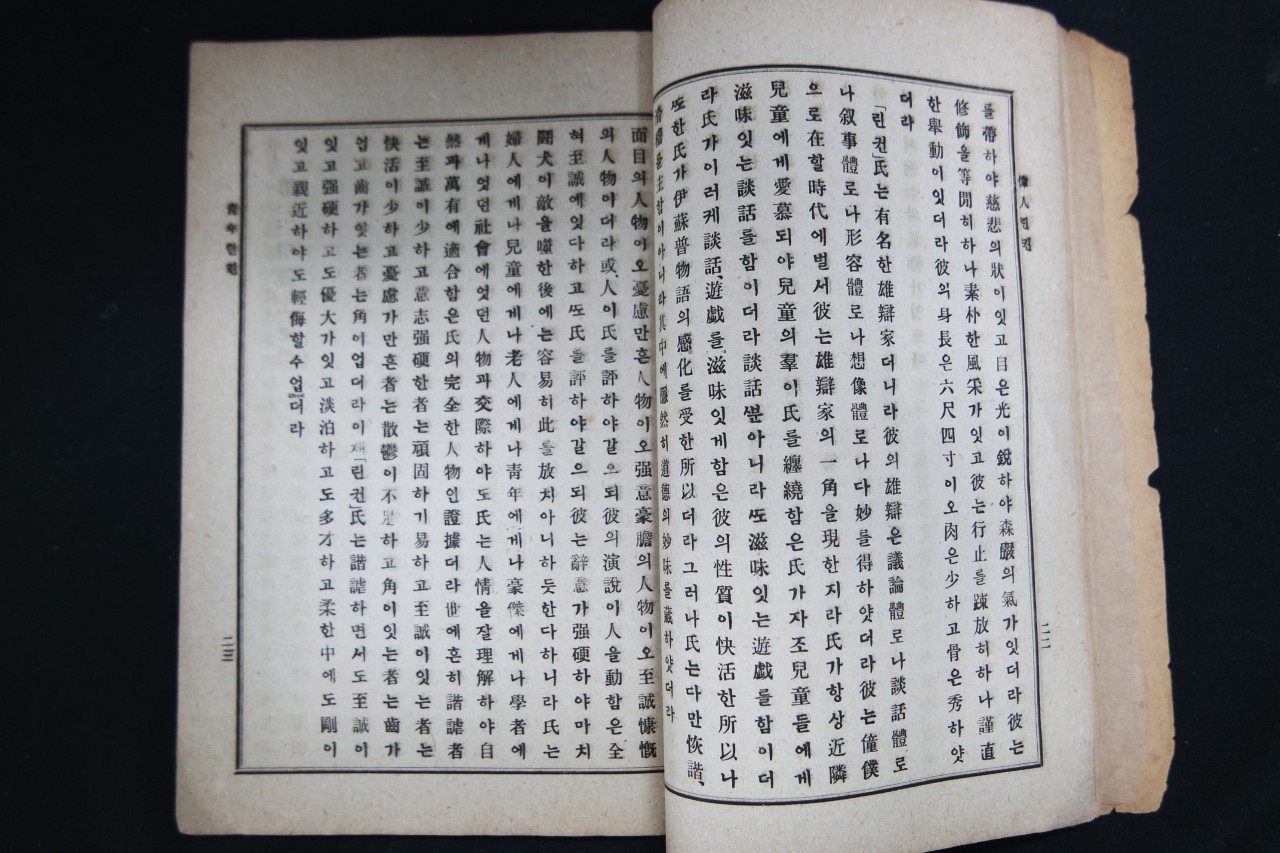 偉人린컨
를帶하야慈悲의狀이잇고目은光이銳하야森嚴의氣가잇더라彼는
修飾을等閒히하나素朴한風采가잇고彼는行止를踈放히하나謹直
한擧動이잇더라彼의身長은六尺四寸이오肉은少하고骨은秀하얏
더라
「린컨」氏는有名한雄辯家더니라彼의雄辯은議論體로나談話體로
나叙事體로나形容體로나想像體로나다妙를得하얏더라彼는僮僕
으로在할時代에벌서彼는雄辯家의一角을現한지라氏가항상近隣
兒童에게愛慕되야兒童의羣이氏를纏繞함은氏가자조兒童들에게
滋味잇는談話를함이더라談話뿐아니라ᄯᅩ滋味잇는遊戱를함이더
라氏가이러케談話、遊戱를滋味잇게함은彼의性質이快活한所以나
ᄯᅩ한氏가伊蘇普物語의感化를受한所以더라그러나氏는다만恢諧、
함이아니라其中에隱然히道德의妙味를藏하얏더라
二二
面目의人物이오憂慮만흔人物이오强意豪膽의人物이오至誠慷慨
의人物이더라或人이氏를評하야갈ᄋᆞ되彼의演說이人을動함은全
혀至誠에잇다하고ᄯᅩ氏를評하야갈으되彼는辭意가强硬하야마치
鬪犬이敵을噬한後에는容易히此를放치아니하듯한다하니라氏는
婦人에게나兒童에게나老人에게나靑年에게나豪傑에게나學者에
게나엇던社會에엇던人物과交際하야도氏는人情을잘理解하야自
然과萬有에適合함은氏의完全한人物인證據더라世에흔히諧謔者
는至誠이少하고意志强硬한者는頑固하기易하고至誠이잇는者는
快活이少하고憂慮가만흔者는散鬱이不足하고角이잇는者는齒가
업고齒가잇는者는角이업더라이제「린컨」氏는諧謔하면서도至誠이
잇고强硬하고도優大가잇고淡泊하고도多才하고柔한中에도剛이
잇고親近하야도輕侮할수업더라
靑年린컨
二三